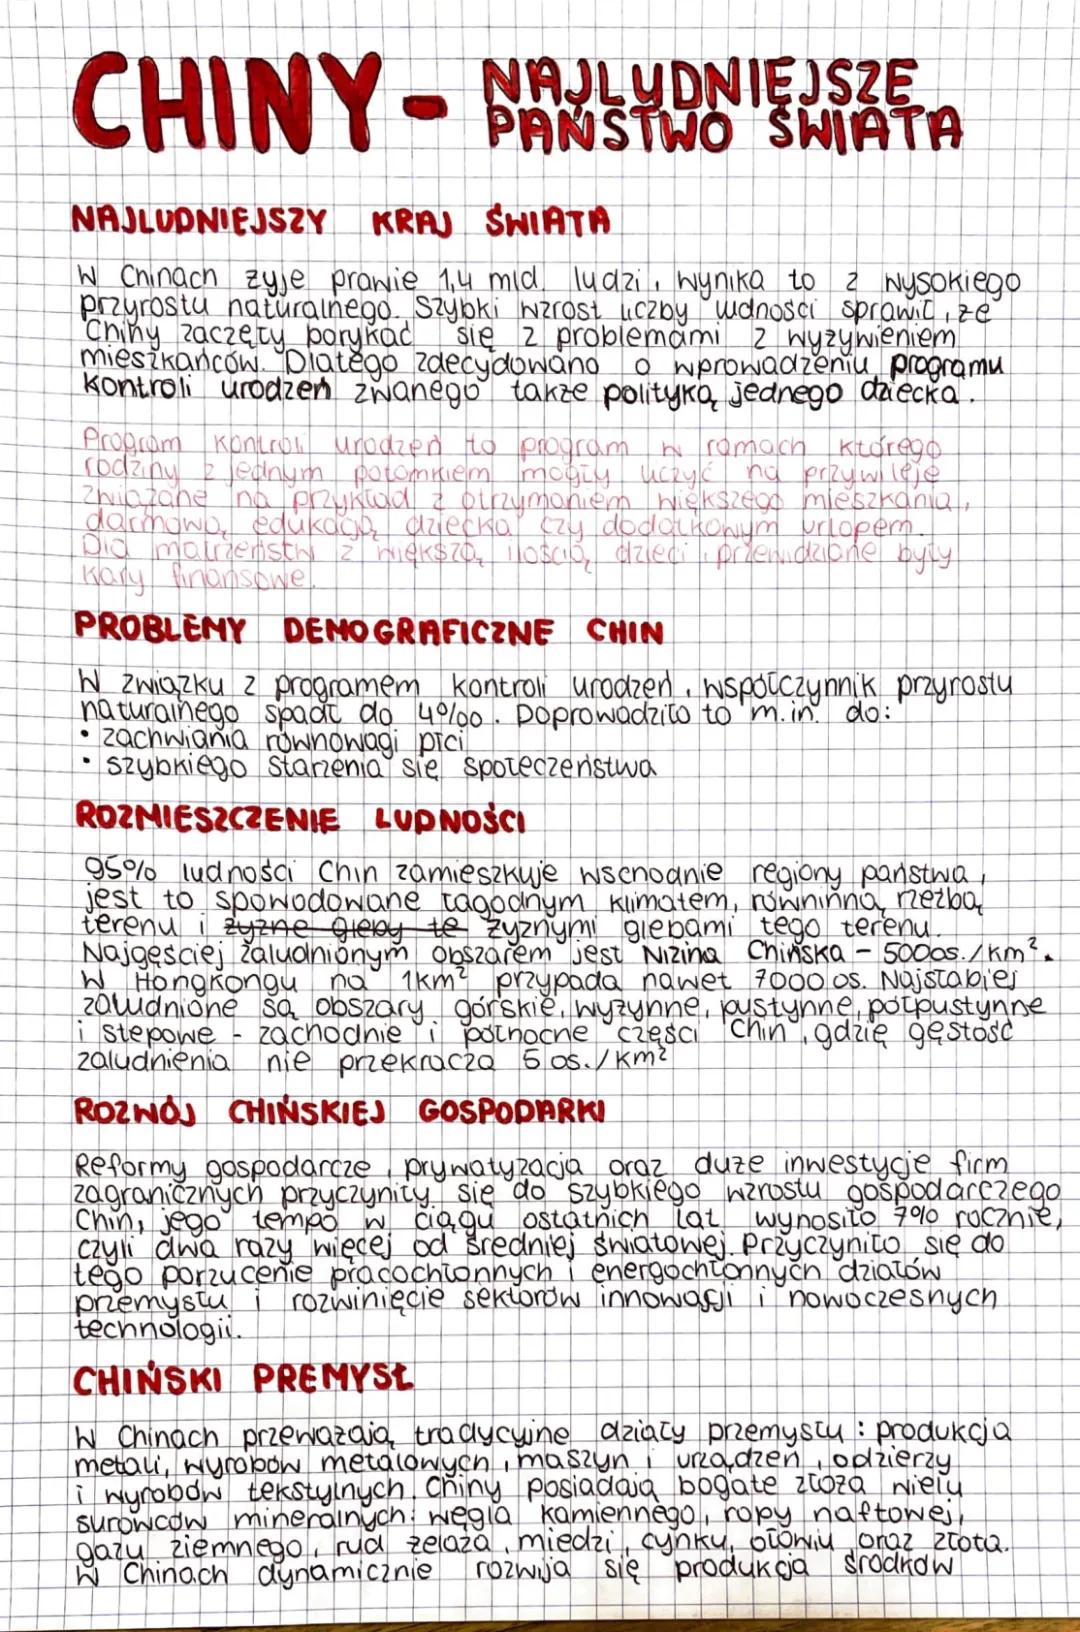 CHINY - NAJLUDNIEJSZE
PAŃSTWO ŚWIATA
NAJLUDNIEJSZY KRAJ ŚWIATA
W Chinach żyje prawie 1,4 mld. ludzi, wynika to z wysokiego
przyrostu naturalnego. Szybki wzrost liczby ludności sprawił, że
Chiny zaczęły borykać się z problemami z wyżywieniem
mieszkańców. Dlatego zdecydowano o wprowadzeniu programu
kontroli urodzeń zwanego także polityką jednego dziecka.
Program kontroli urodzeń to program w ramach którego
rodziny z jednym potomkiem mogły liczyć na przywileje
związane na przykład z otrzymaniem większego mieszkania,
darmową edukacją dziecka czy dodatkowym urlopem.
Dla małżeństw z większą ilością dzieci, przewidziane były
kary finansowe.
PROBLEMY DEMOGRAFICZNE CHIN
W związku z programem kontroli urodzeń, współczynnik przyrostu
naturalnego spadł do 4‰. Doprowadziło to m.in. do:
• zachwiania równowagi płci
• szybkiego starzenia się społeczeństwa
ROZMIESZCZENIE LUDNOŚCI
95% ludności Chin zamieszkuje wschodnie regiony państwa,
jest to spowodowane łagodnym klimatem, równinną rzeźbą
terenu i żyzne gleby te żyznymi glebami tego terenu.
Najgęściej zaludnionym obszarem jest Nizina Chińska - 5000os./km².
W Hongkongu na 1km² przypada nawet 7000 os. Najsłabiej
zaludnione są obszary górskie, wyżynne, pustynne, półpustynne
i stepowe - zachodnie i północne części Chin, gdzie gęstość
zaludnienia nie przekracza 5 os./km²
ROZWÓJ CHIŃSKIEJ GOSPODARKI
Reformy gospodarcze, prywatyzacja oraz duże inwestycje firm
zagranicznych przyczyniły się do szybkiego wzrostu gospodarczego
Chin, jego tempo w ciągu ostatnich lat wynosiło 7% rocznie,
czyli dwa razy więcej od średniej światowej. Przyczyniło się do
tego porzucenie pracochłonnych i energochłonnych działów
przemysłu i rozwinięcie sektorów innowacji i nowoczesnych
technologii.
CHIŃSKI PREMYSŁ
W Chinach przeważają tradycyjne działy przemysłu: produkcja
metali, wyrobów metalowych, maszyn i urządzeń, odzieży
i wyrobów tekstylnych. Chiny posiadają bogate złoża wielu
surowców mineralnych: węgla kamiennego, ropy naftowej,
gazu ziemnego, rud żelaza, miedzi, cynku, ołowiu oraz złota.
W Chinach dynamicznie rozwija się produkcja środków